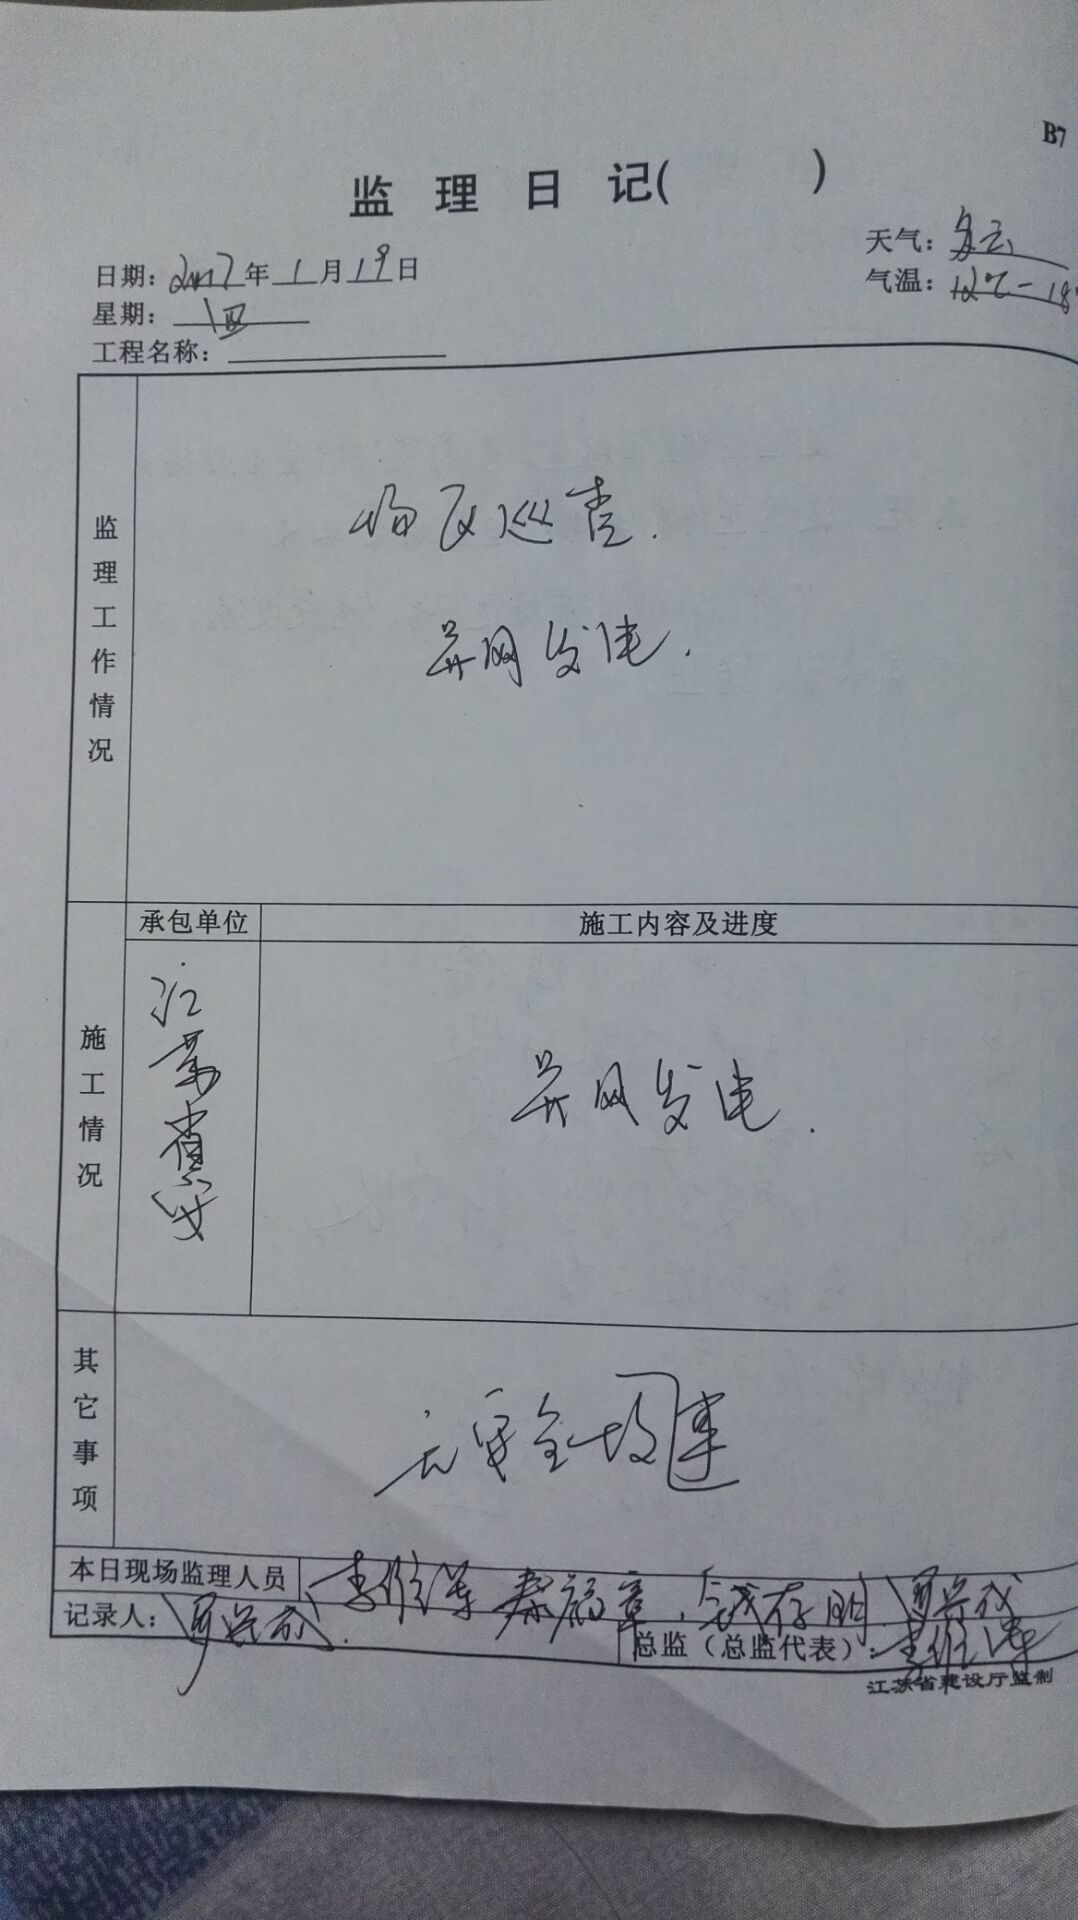 B7
监理日记( )
日期:2017年1月19日
天气:多云
星期:四
气温:12℃-18
工程名称:
监理工作情况
场区巡查.
并网发电.
承包单位
施工内容及进度
施工情况
江苏
并网发电.
其它事项
无安全
本日现场监理人员
记录人:
总监(总监代表):
江苏省建设厅监制